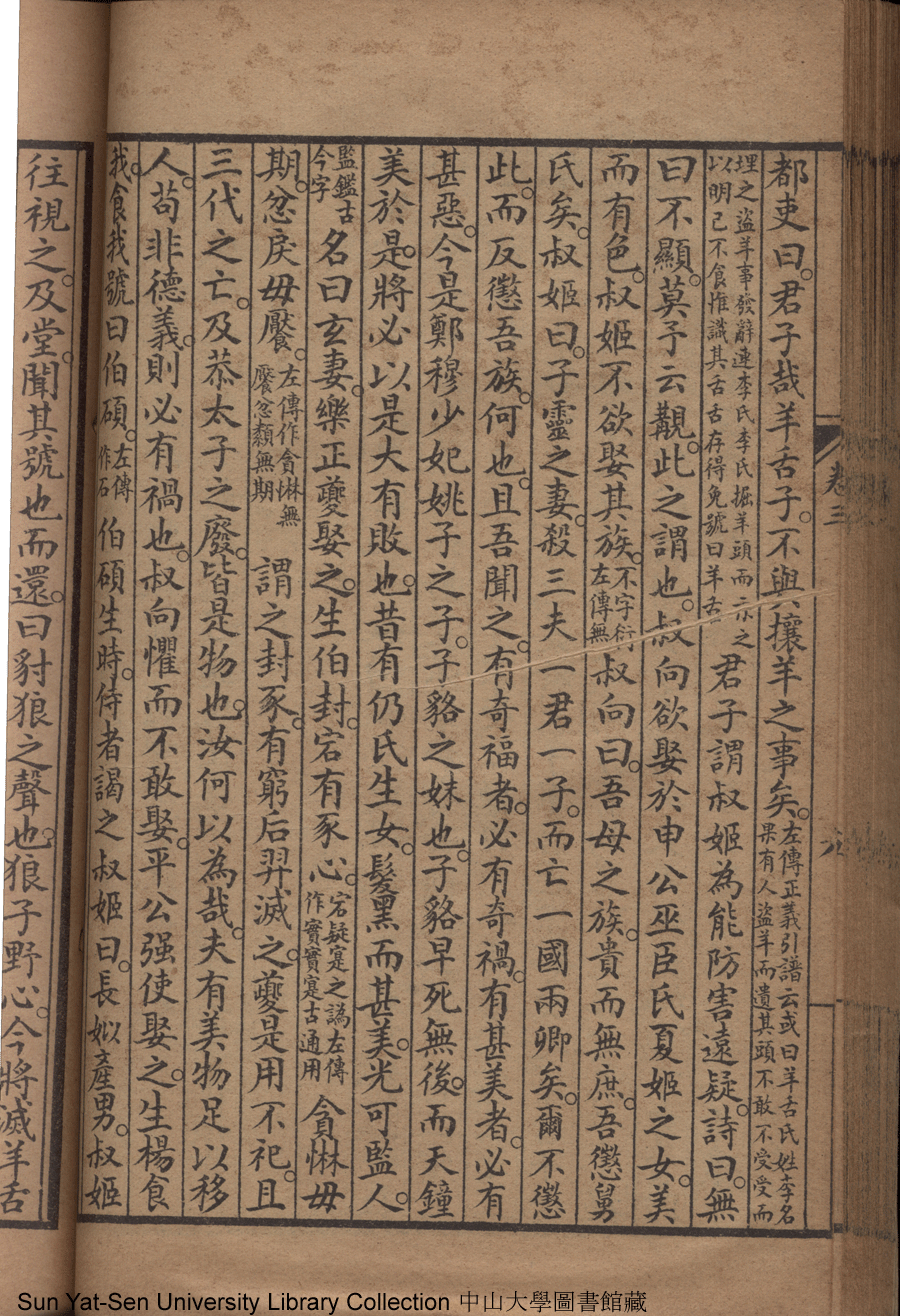 都吏曰君子哉羊舌子不與攘羊之事矣左傳正義引譜云或曰羊舌氏姓李名果有人盜羊而遺其頭不敢不受受而
埋之盜羊事發辭連李氏李氏掘羊頭而示之以明己不食惟識其舌舌存得免號曰羊舌君子謂叔姬為能防害遠疑詩曰無
曰不顯莫予云覯此之謂也叔向欲娶於申公巫臣氏夏姬之女美
而有色叔姬不欲娶其族不字衍左傳無叔向曰吾母之族貴而無庶吾懲舅
氏矣叔姬曰子靈之妻殺三夫一君一子而亡一國兩卿矣爾不懲
此而反懲吾族何也且吾聞之有奇福者必有奇禍有甚美者必有
甚惡今是鄭穆少妃姚子之子子貉之妹也子貉早死無後而天鐘
美於是將必以是大有敗也昔有仍氏生女髮黑而甚美光可監人
監鑑古今字名曰玄妻樂正夔娶之生伯封宕有豕心宕疑寔之譌左傳作實實寔古通用貪惏毋
期忿戾毋饜左傳作貪惏無饜忿纇無期謂之封豕有窮后羿滅之夔是用不祀且
三代之亡及恭太子之廢皆是物也汝何以為哉夫有美物足以移
人苟非德義則必有禍也叔向懼而不敢娶平公强使娶之生楊食
我食我號曰伯碩左傳作石伯碩生時侍者謁之叔姬曰長姒產男叔姬
往視之及堂聞其號也而還曰豺狼之聲也狼子野心今將滅羊舌
卷三
Sun Yat-Sen University Library Collection 中山大學圖書館藏